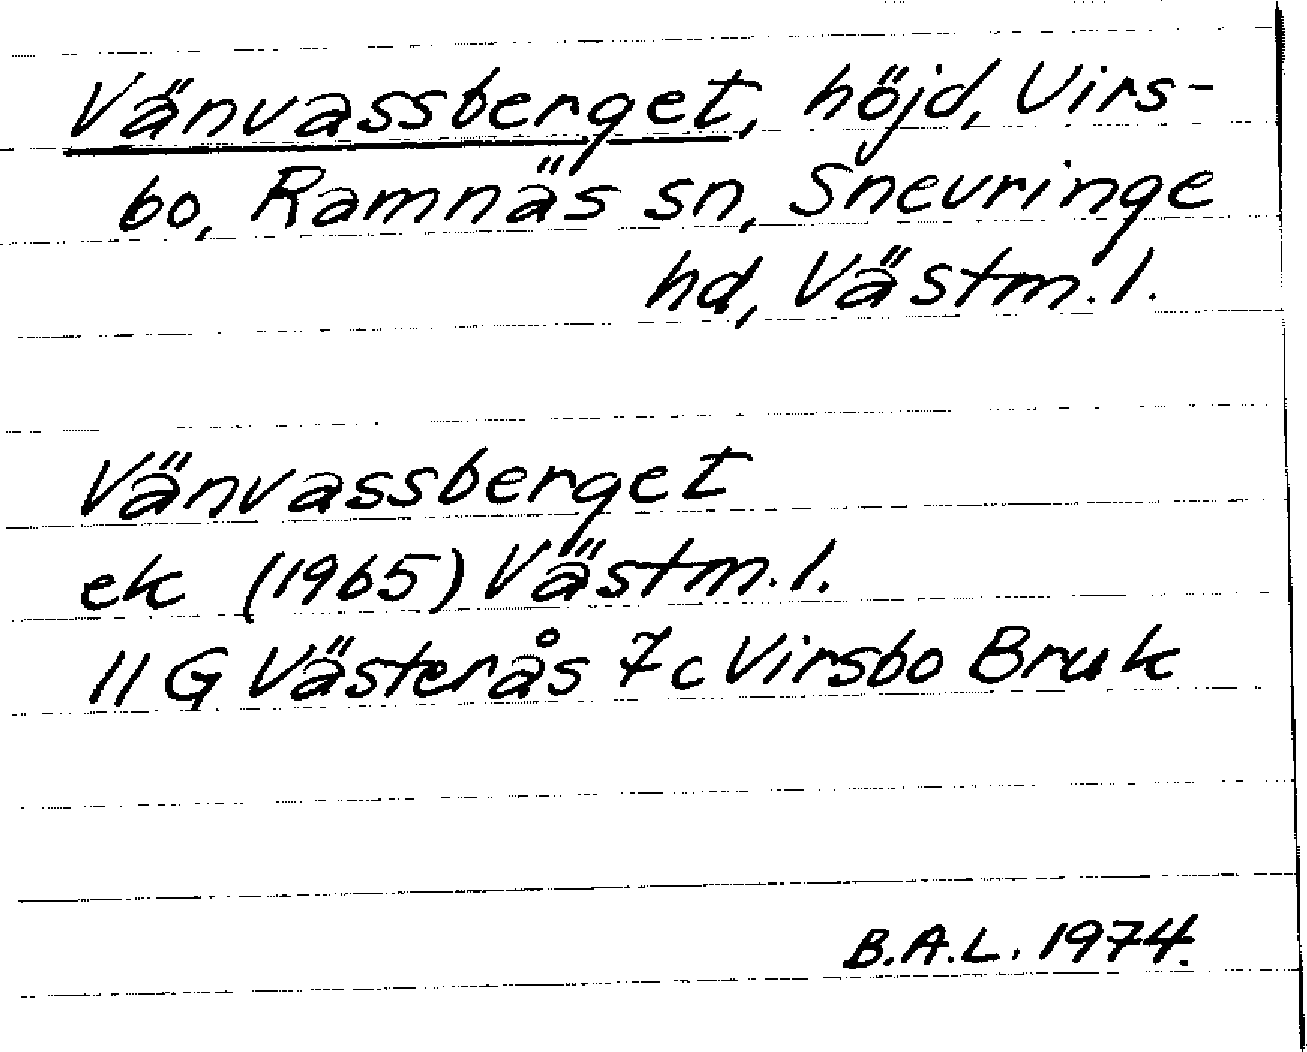 Vänvassberget, höjd, Virs-
bo, Ramnäs sn, Snevringe
hd, Västm. l.
Vänvassberget
ek (1965) Västm. l.
11 G Västerås 7c Virsbo Bruk
B.A.L. 1974.